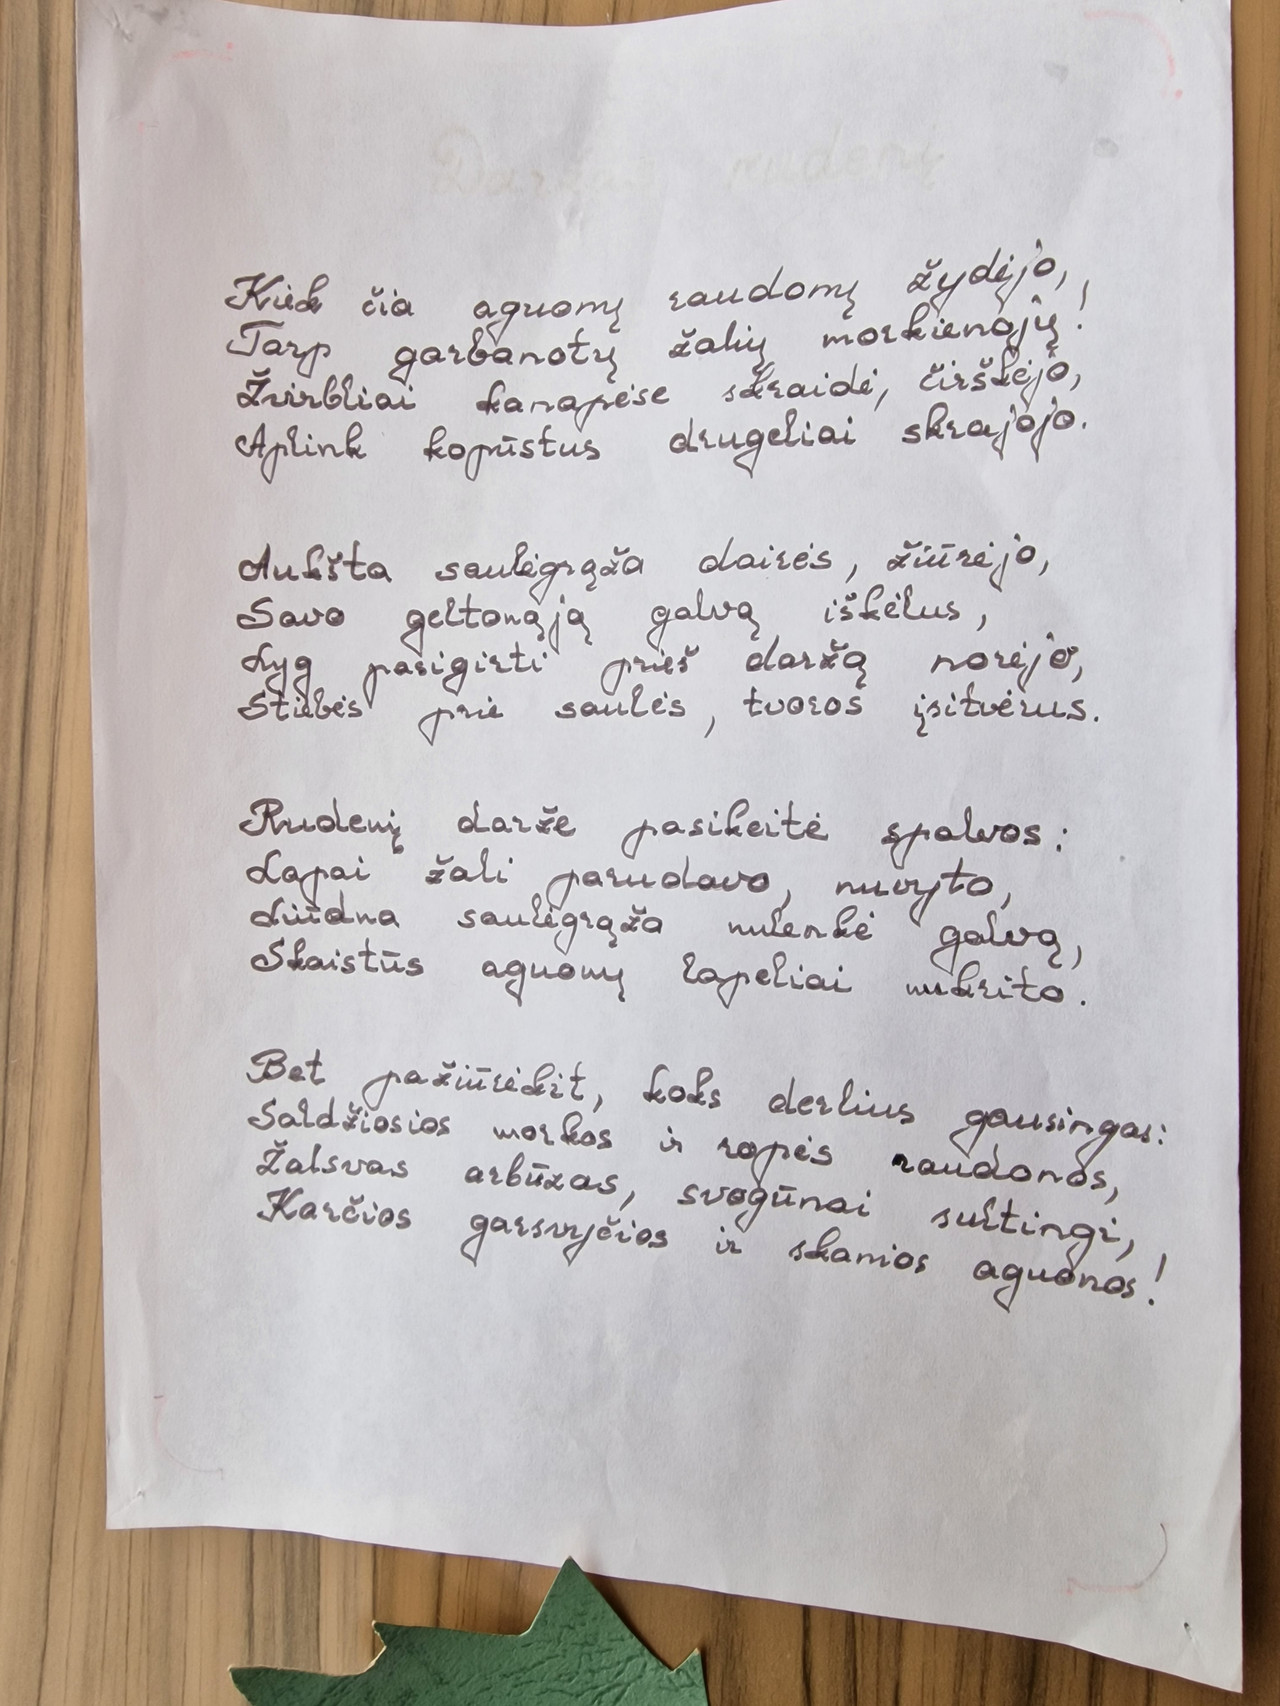 Daržas rudenį
Kiek čia aguonų raudonų žydėjo,
Tarp garbanotų žalių morkienojų!
Žvirbliai kanapėse skraidė, čirškėjo,
Aplink kopūstus drugeliai skrajojo.
Aukšta saulėgrąža dairės, žiūrėjo,
Savo geltonąją galvą iškėlus,
Lyg pasigirti prieš daržą norėjo,
Stiebės prie saulės, tvoros įsitvėrus.
Rudenį darže pasikeitė spalvos:
Lapai žali parudavo, nuvyto,
Liūdna saulėgrąža nulenkė galvą,
Skaistūs aguonų lapeliai nukrito.
Bet pažiūrėkit, koks derlius gausingas:
Saldžiosios morkos ir ropės raudonos,
Žalsvas arbūzas, svogūnai sultingi,
Karčios garsvyčios ir skanios aguonos!